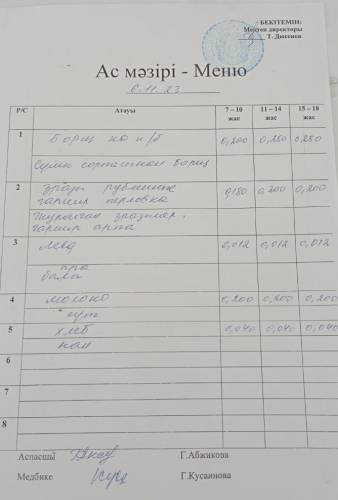 БЕКІТЕМІН:
Мектеп директоры
Т. Дюсенов
Ас мәзірі - Меню
6.11.23
Р/С Атауы 7 – 10 жас 11 – 14 жас 15 – 18 жас
1 Борщ на к/б 0,200 0,250 0,250
Борщ
2 0,180 0,200 0,200
гарнир перловка
гарнир арпа
3 0,012 0,012 0,012
4 молоко 0,200 0,200 0,200
сүт
5 хлеб 0,040 0,040 0,040
нан
6
7
8
Аспасшы Г.Абжикова
Медбике Г.Кусаинова